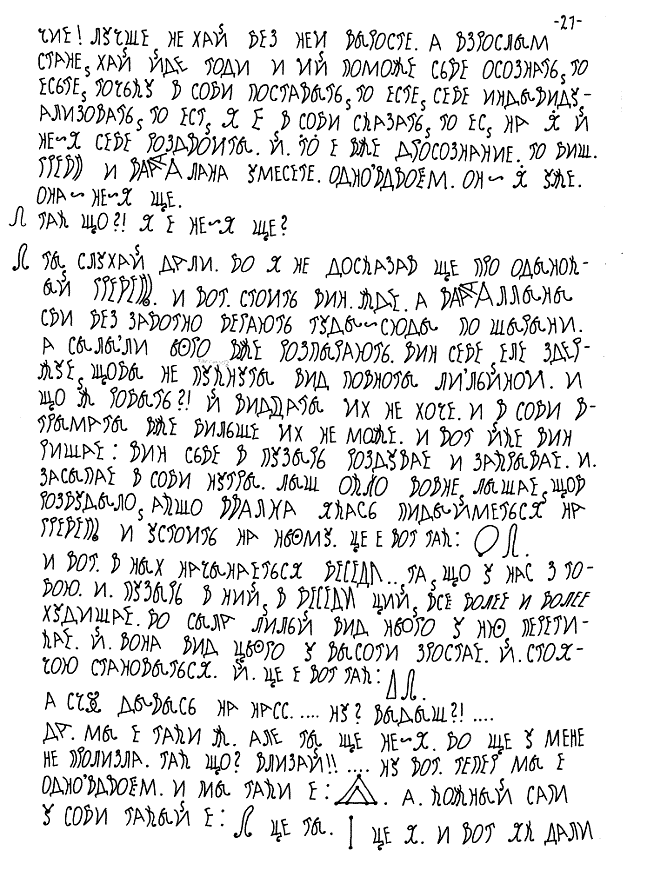 -21-
ЧИЕ! ЛУЧШЕ, НЕ ХАЙ БЕЗ НЕИ ВЫРОСТЕ. А ВЗРОСЛЫМ
СТАНЕ, ХАЙ ЙДЕ ТОДИ И ИЙ ПОМОЖЕ СЬВЕ ОСОЗНАТЬ, ТО
ЕСЬТЕ, ТОЧЬКУ В СОБИ ПОСТАВЫТЬ, ТО ЕСТЕ, СЕБЕ ИНДЫВИДУ,-
АЛИЗОВАТЬ, ТО ЕСТ, Я Е В СОБИ СКАЗАТЬ, ТО ЕС, НА Я Й
НЕ~Я СЕБЕ РОЗДВОИТЫ. Й. ТО Е ВЖЕ ДРОСОЗНАНИЕ. ТО БИШ.
ГРЕБЕЦЬ И ВАРАЛАНА УМЕСЕТЕ. ОДНО'ВДВОЕМ. ОН~ Я УЖЕ.
ОНА~ НЕ~Я ЩЕ.
Л ТАК ЩО?! Я Е НЕ~Я ЩЕ?
Л ТЫ, СЛУХАЙ ДАЛИ. БО Я НЕ ДОСКАЗАВ ЩЕ ПРО ОДЫНОК-
ЫЙ ГРЕБЕЦЬ. И ВОТ. СТОИТЬ ВИН. ЖДЕ. А ВАРАЛЛЫНЫ
СВИ БЕЗ ЗАБОТНО БЕГАЮТЬ ТУДЫ~СЮДЫ ПО ШЫРЫНИ.
А СЫЛЫ'ЛИ ЙОГО ВЖЕ РОЗПЫРАЮТЬ. ВИН СЕБЕ, ЕЛЕ ЗДЕР-
ЖУЕ, ЩОБЫ НЕ ПУКНУТЫ ВИД ПОВНОТЫ ЛИ'ЛЬИНОИ. И
ЩО Ж РОБЫТЬ?! Й ВИДДАТЫ ИХ НЕ ХОЧЕ. И В СОБИ В-
ТРЫМАТЫ ВЖЕ БИЛЬШЕ ИХ НЕ МОЖЕ. И ВОТ ЙЖЕ ВИН
РИШАЕ: ВИН СЬБЕ В ПУЗЫРЬ РОЗДУВАЕ И ЗАКРЫВАЕ. И.
ЗАСЫПАЕ В СОБИ НУТРЫ. ЛЫШ ОКНО ВОВНЕ, ЛЫШАЕ, ЩОБ
РОЗБУДЫЛО, АКЩО ВРАЛНА ЯКАСЬ ПИДЫЙМЕТЬСЯ НА
ГРЕБЕЦЬ И УСТОИТЬ НА НЬОМУ. ЦЕ Е ВОТ ТАК: О Л.
И ВОТ. В НЫХ НАЧЫНАЕТЬСЯ БЕСЕДА.. ТА, ЩО У НАС З ТО-
БОЮ. И. ПУЗЫРЬ В НИЙ, В БЕСЕДИ ЦИЙ, ВСЕ БОЛЕЕ И БОЛЕЕ
ХУДИЩАЕ. БО СЫЛА ЛИЛЬЙ ВИД НЬОГО У НЮ, ПЕРЕТИ-
КАЕ. Й. ВОНА ВИД ЦЬОГО У ВЫСОТИ ЗРОСТАЕ. Й. СТОЯ-
ЧОЮ СТАНОВЫТЬСЯ. Й. ЦЕ Е ВОТ ТАК:
А ДЫВЫСЬ НА НАСС..... НУ? ВЫДЫШ?!....
ДА. МЫ Е ТАКИ Ж. АЛЕ ТЫ ЩЕ НЕ~Я. БО ЩЕ У МЕНЕ
НЕ ПРОЛИЗЛА. ТАК ЩО? ВЛИЗАЙ!!.... НУ ВОТ. ТЕПЕР МЫ Е
ОДНО'ВДВОЕМ. И МЫ ТАКИ Е: . А. КОЖНЫЙ САМ
У СОБИ ТАКЫЙ Е: Л ЦЕ ТЫ. | ЦЕ Я. И ВОТ ЯК ДАЛИ